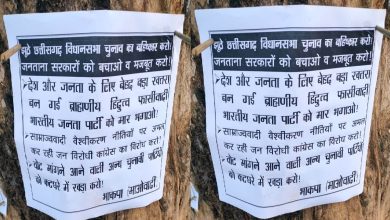 झूठे छत्तीसगढ़ विधानसभा चुनाव का बहिष्कार करो!
जनताना सरकारों को बचाओ व मजबूत करो!
• देश और जनता के लिए बेहद बड़ा खतरा
बन गई ब्राहाणीय हिंदुत्व फासीवादी
भारतीय जनता पार्टी को मार भगाओ!
• साम्राज्यवादी वैश्वीकरण नीतियों पर अमल
कर रही जन विरोधी कांग्रेस का विरोध करो!
• वोट मांगने आने वाली अन्य चुनावी पार्टियों
को कटघरे में खड़ा करो!
भाकपा (माओवादी)
झूठे छत्तीसगढ़ विधानसभा चुनाव का बहिष्कार करो!
जनताना सरकारों को बचाओ व मजबूत करो!
• देश और जनता के लिए बेहद बड़ा खतरा
बन गई ब्राहाणीय हिंदुत्व फासीवादी
भारतीय जनता पार्टी को मार भगाओ!
• साम्राज्यवादी वैश्वीकरण नीतियों पर अमल
कर रही जन विरोधी कांग्रेस का विरोध करो!
• वोट मांगने आने वाली अन्य चुनावी पार्टियों
को कटघरे में खड़ा करो!
भाकपा (माओवादी)